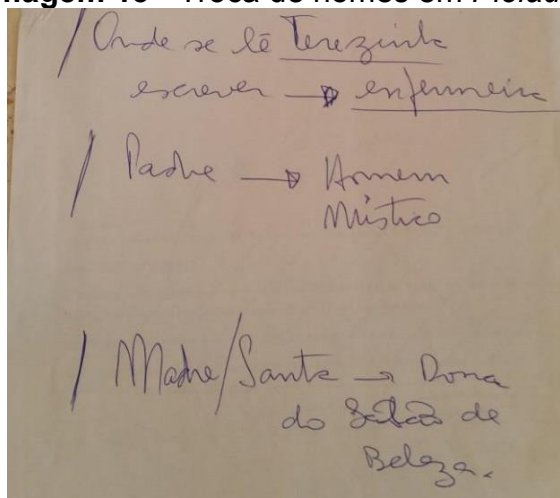 Troca de nomes em
/ Onde se lê Terezinha
escrever → enfermeira
/ Padre → Homem
Místico
/ Madre/Santa → Dona
do Salão de
Beleza.